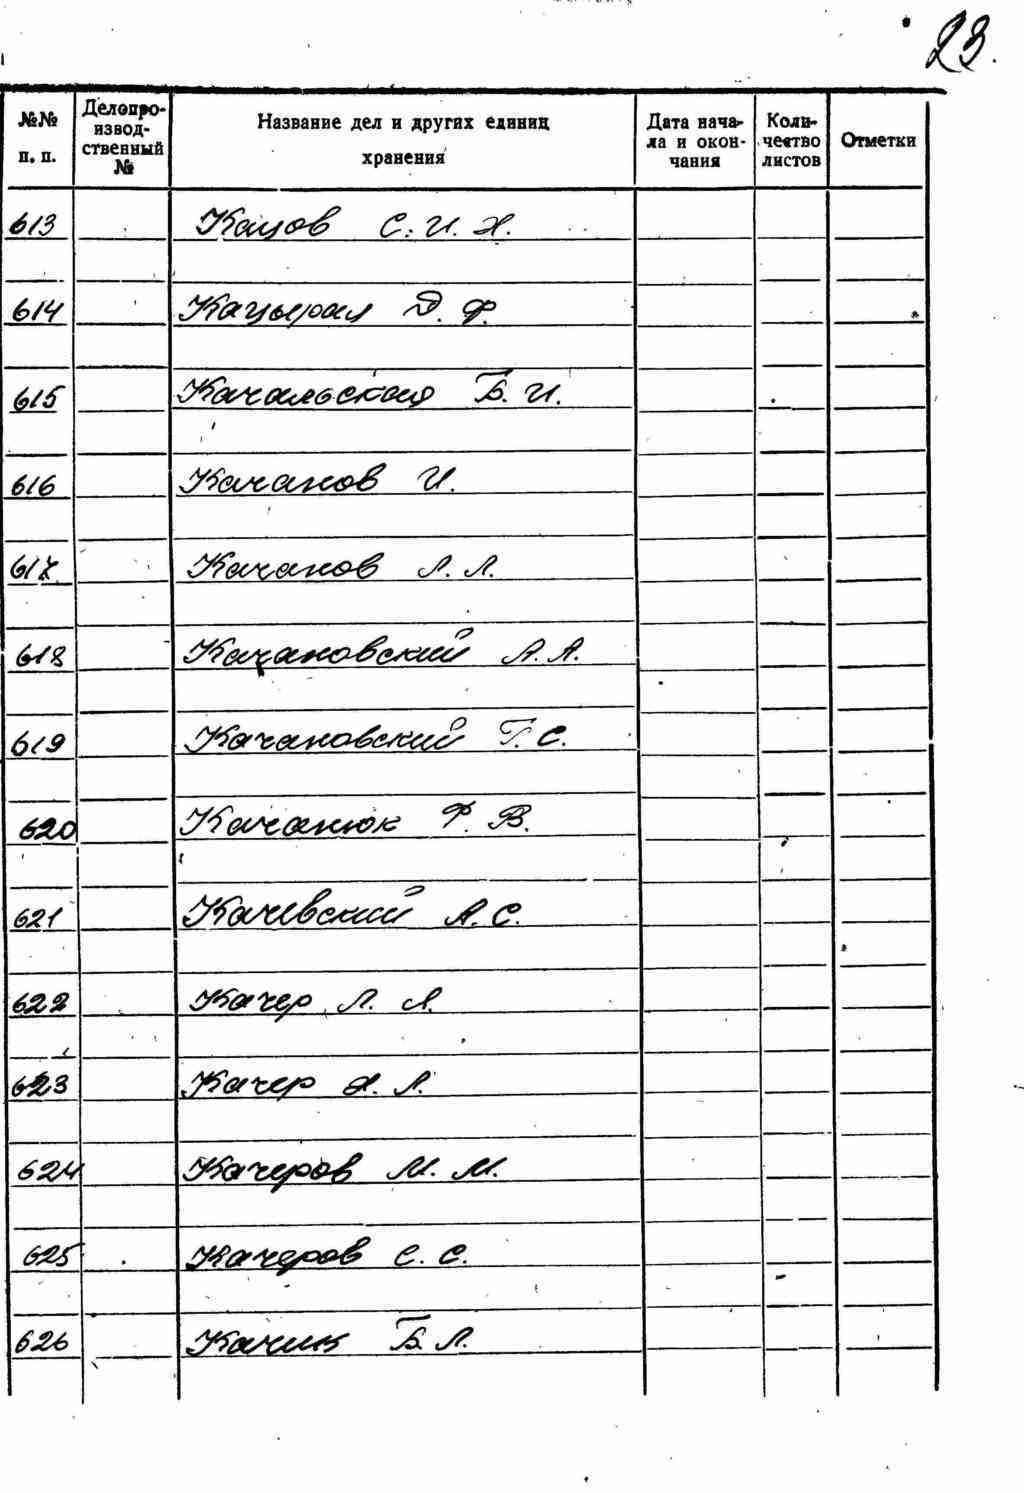 23.
№№ п. п. Делопроизводственный № Название дел и других единиц хранения Дата начала и окончания Количество листов Отметки
613 Кацов С. И. Х.
614 Кацырал Д. Ф.
615 Качальская Б. И.
616 Качанов И.
617 Качанов Л. Л.
618 Качановский А. А.
619 Качановский Г. С.
620 Качанюк Ф. В.
621 Качевский А. С.
622 Качер Л. А.
623 Качер Х. Л.
624 Качеров М. М.
625 Качеров С. С.
626 Качик Б. Л.